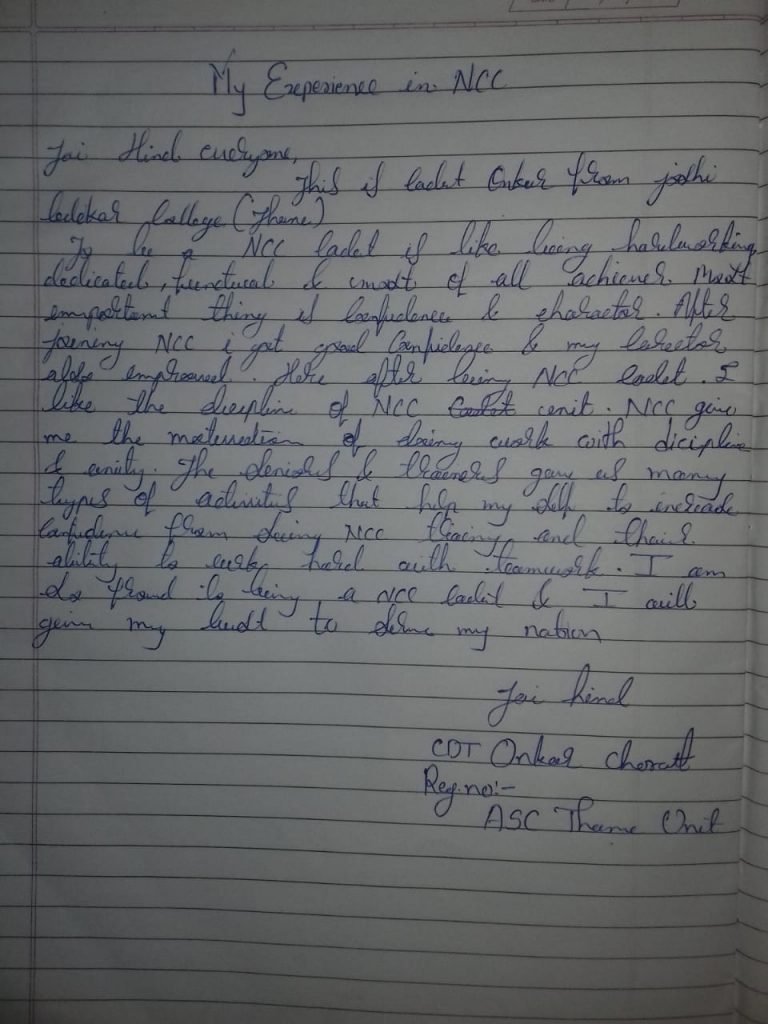 My Exeperience in NCC
Jai Hind everyone,
This is Cadet Onkar from joshi
bedekar College (Thane)
To be a NCC Cadet is like being hardworking,
dedicated, punctural & most of all achiever. Most
emportant thing is Confidence & charactor. After
joinning NCC i got good Confidence & my carector
also emproved. Here after being NCC cadet. I
like the decipline of NCC unit. NCC give
me the motivation of doing work with dicipline
& unity. The seniors & traners gave us many
types of activitis that help my self to increase
Confidence from doing NCC traing and thair
ability to work hard with teamwork. I am
So proud to being a NCC Cadet & I will
give my best to serve my nation
Jai hind
CDT Onkar
Reg.no:-
ASC Thane Unit